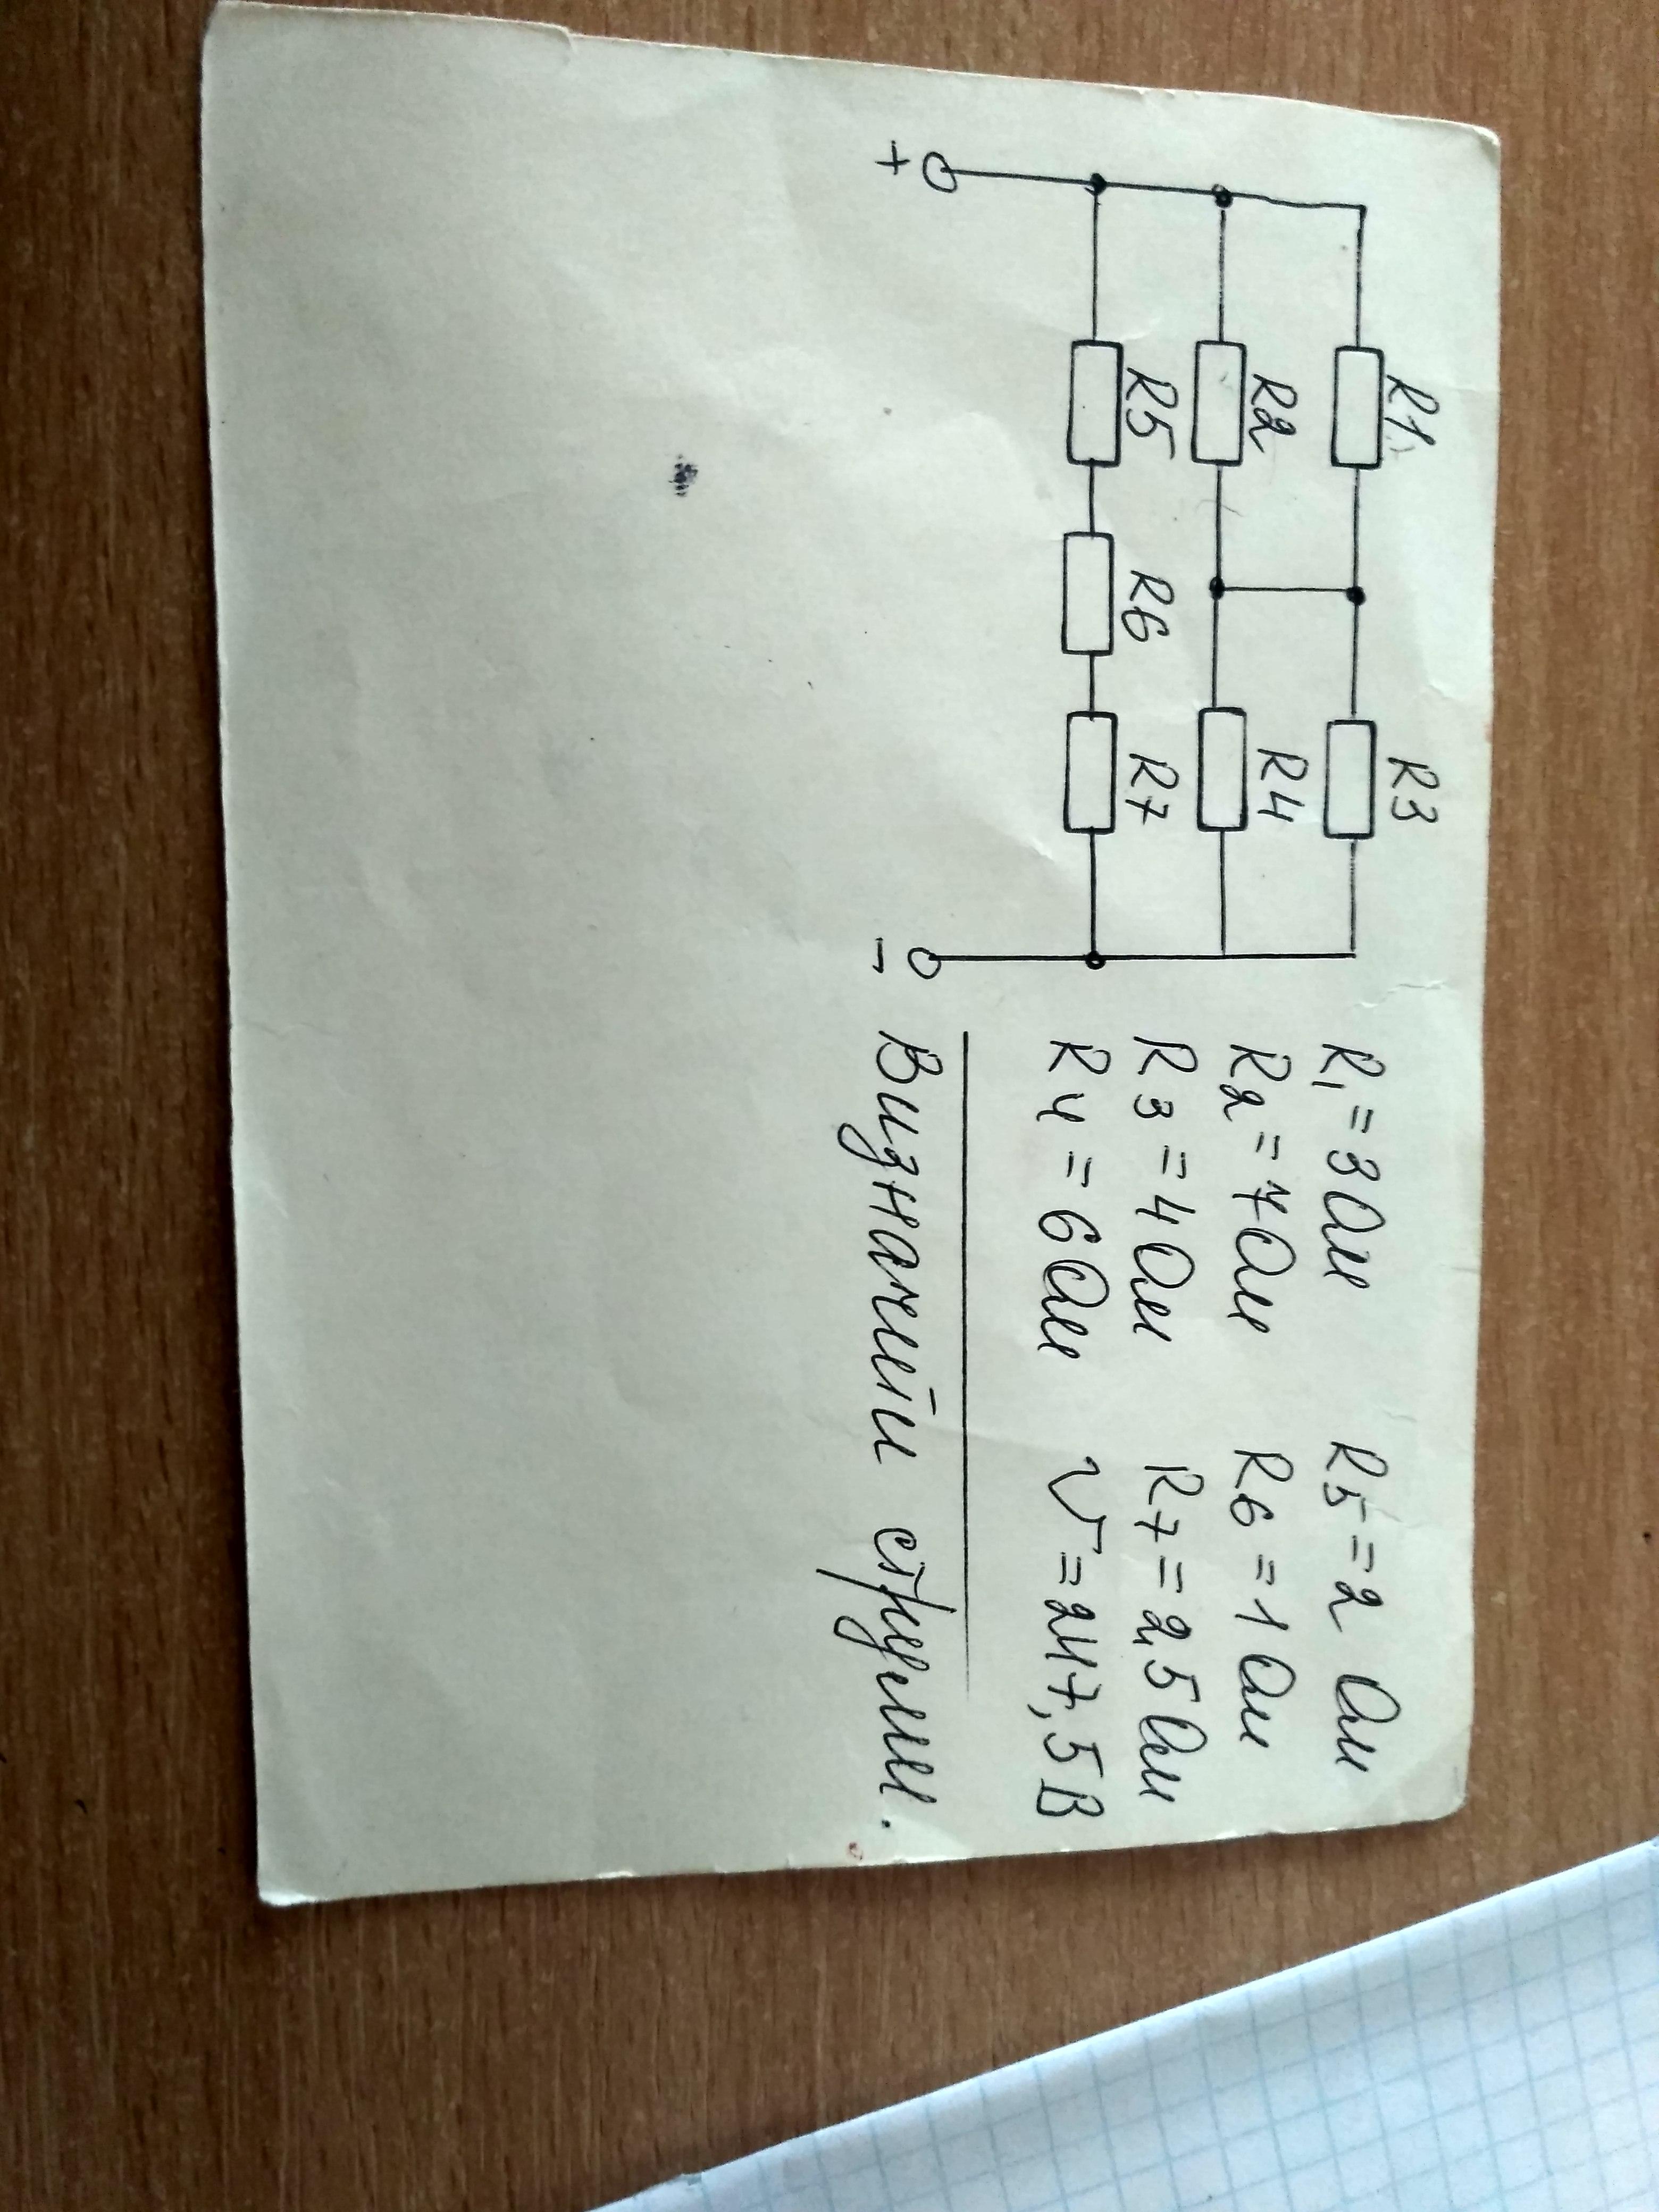 R1 R3
R2 R4
R5 R6 R7
+ −
R1=3Ом R5=2 Ом
R2=7Ом R6=1Ом
R3=4Ом R7=2,5Ом
R4=6Ом U=247,5В
Визначити струми.